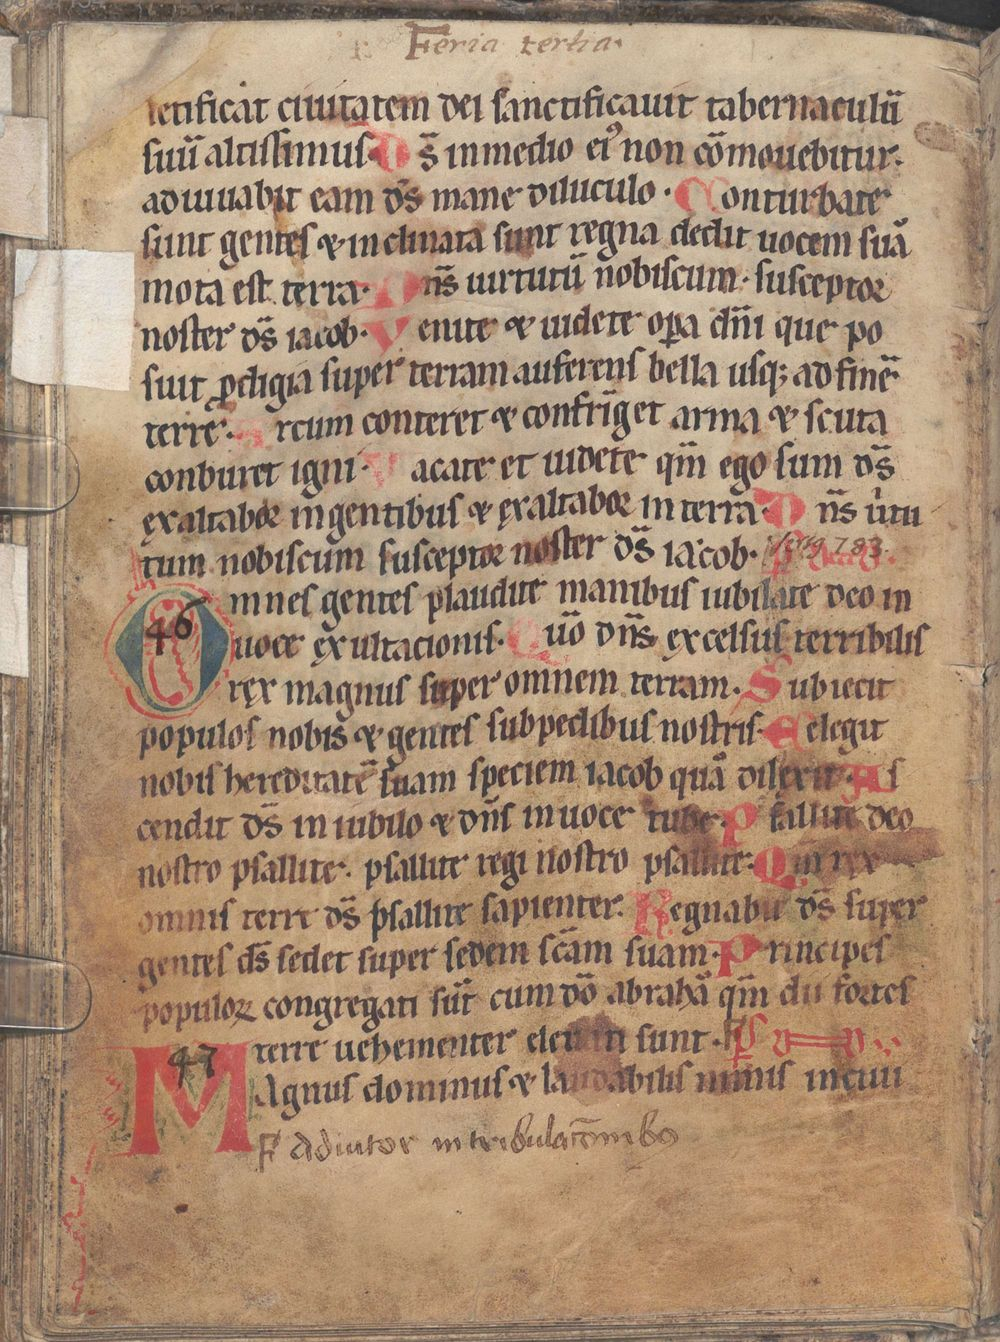 Feria tertia.
letificat ciuitatem dei sanctificauit tabernaculū
suū altissimus. Ds̄ in medio ei⁹ non cōmouebitur.
adiuuabit eam ds̄ mane diluculo. Conturbate
sunt gentes ⁊ inclinata sunt regna dedit uocem suā
mota est terra. Dn̄s uirtutū nobiscum. susceptor
noster ds̄ iacob. Venite ⁊ uidete oꝑa dn̄i que po
suit ꝓdigia super terram auferens bella usqꝫ ad finē
terre. Arcum conteret ⁊ confringet arma ⁊ scuta
conburet igni. Vacate et uidete qm̄ ego sum ds̄
exaltabor in gentibus ⁊ exaltabor in terra. Dn̄s uirtu
tum nobiscum susceptor noster ds̄ iacob.
Omnes gentes plaudite manibus iubilate deo in
46 uoce exultacionis. Quō dn̄s excelsus terribilis
rex magnus super omnem terram. Subiecit
populos nobis ⁊ gentes sub pedibus nostris. Eelegit
nobis hereditatē suam speciem iacob quā dilexit. As
cendit ds̄ in iubilo ⁊ dn̄s in uoce tube. Psallite deo
nostro psallite. psallite regi nostro psallite. Qm̄ rex
omnis terre ds̄ psallite sapienter. Regnabit ds̄ super
gentes ds̄ sedet super sedem scām suam. Principes
populoꝝ congregati sūt cum dō abrahā qm̄ dii fortes
terre uehementer eleuati sunt. ps
47 Magnus dominus ⁊ laudabilis nimis in ciui
Adiutor in tribulacōnibꝰ